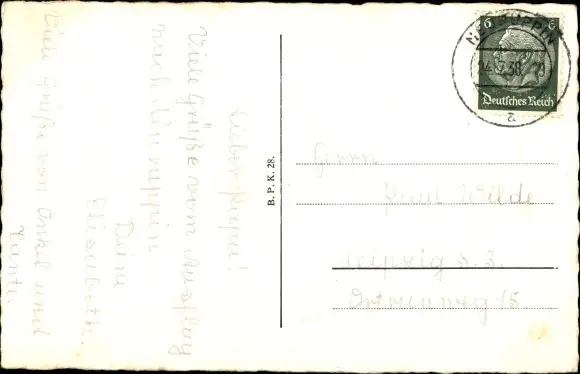 Lieber Papa!
Viele Grüße vom Ausflug
nach Neuruppin
Deine
Elisabeth.
Viele Grüße von Onkel und
Tante
B. P. K. 28.
NEURUPPIN
38
a
6 6
Deutsches Reich
Herrn
Paul Wilde
Leipzig